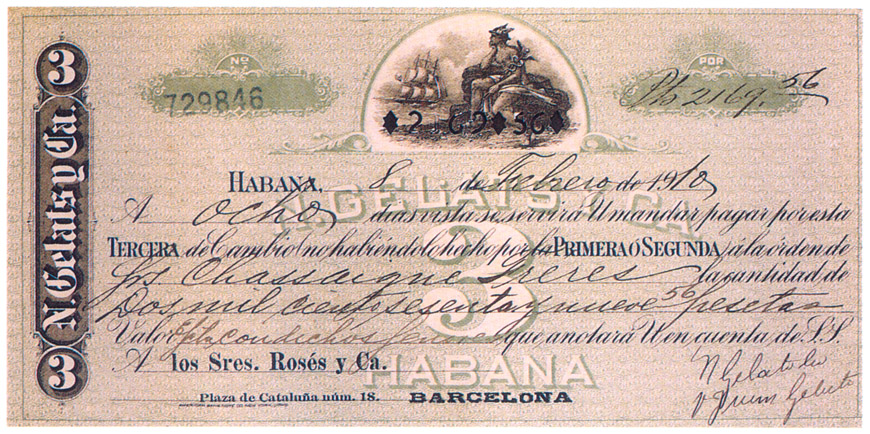 3
N. Gelats y Ca.
3
Nº
729846
POR
Pts 2169.56
♦2.69♦56♦
N. GELATS Y CA.
3
HABANA
HABANA, 8 de Febrero de 1910
A ocho días vista se servirá U mandar pagar por esta
TERCERA de Cambio (no habiéndolo hecho por la PRIMERA ó SEGUNDA) a la órden de
Srs Chassaigne Freres la cantidad de
Dos mil ciento sesenta y nueve 56 pesetas
Valor en cuenta de S.S. que anotará U en
A los Sres. Rosés y Ca.
Plaza de Cataluña núm. 18. BARCELONA
N Gelats